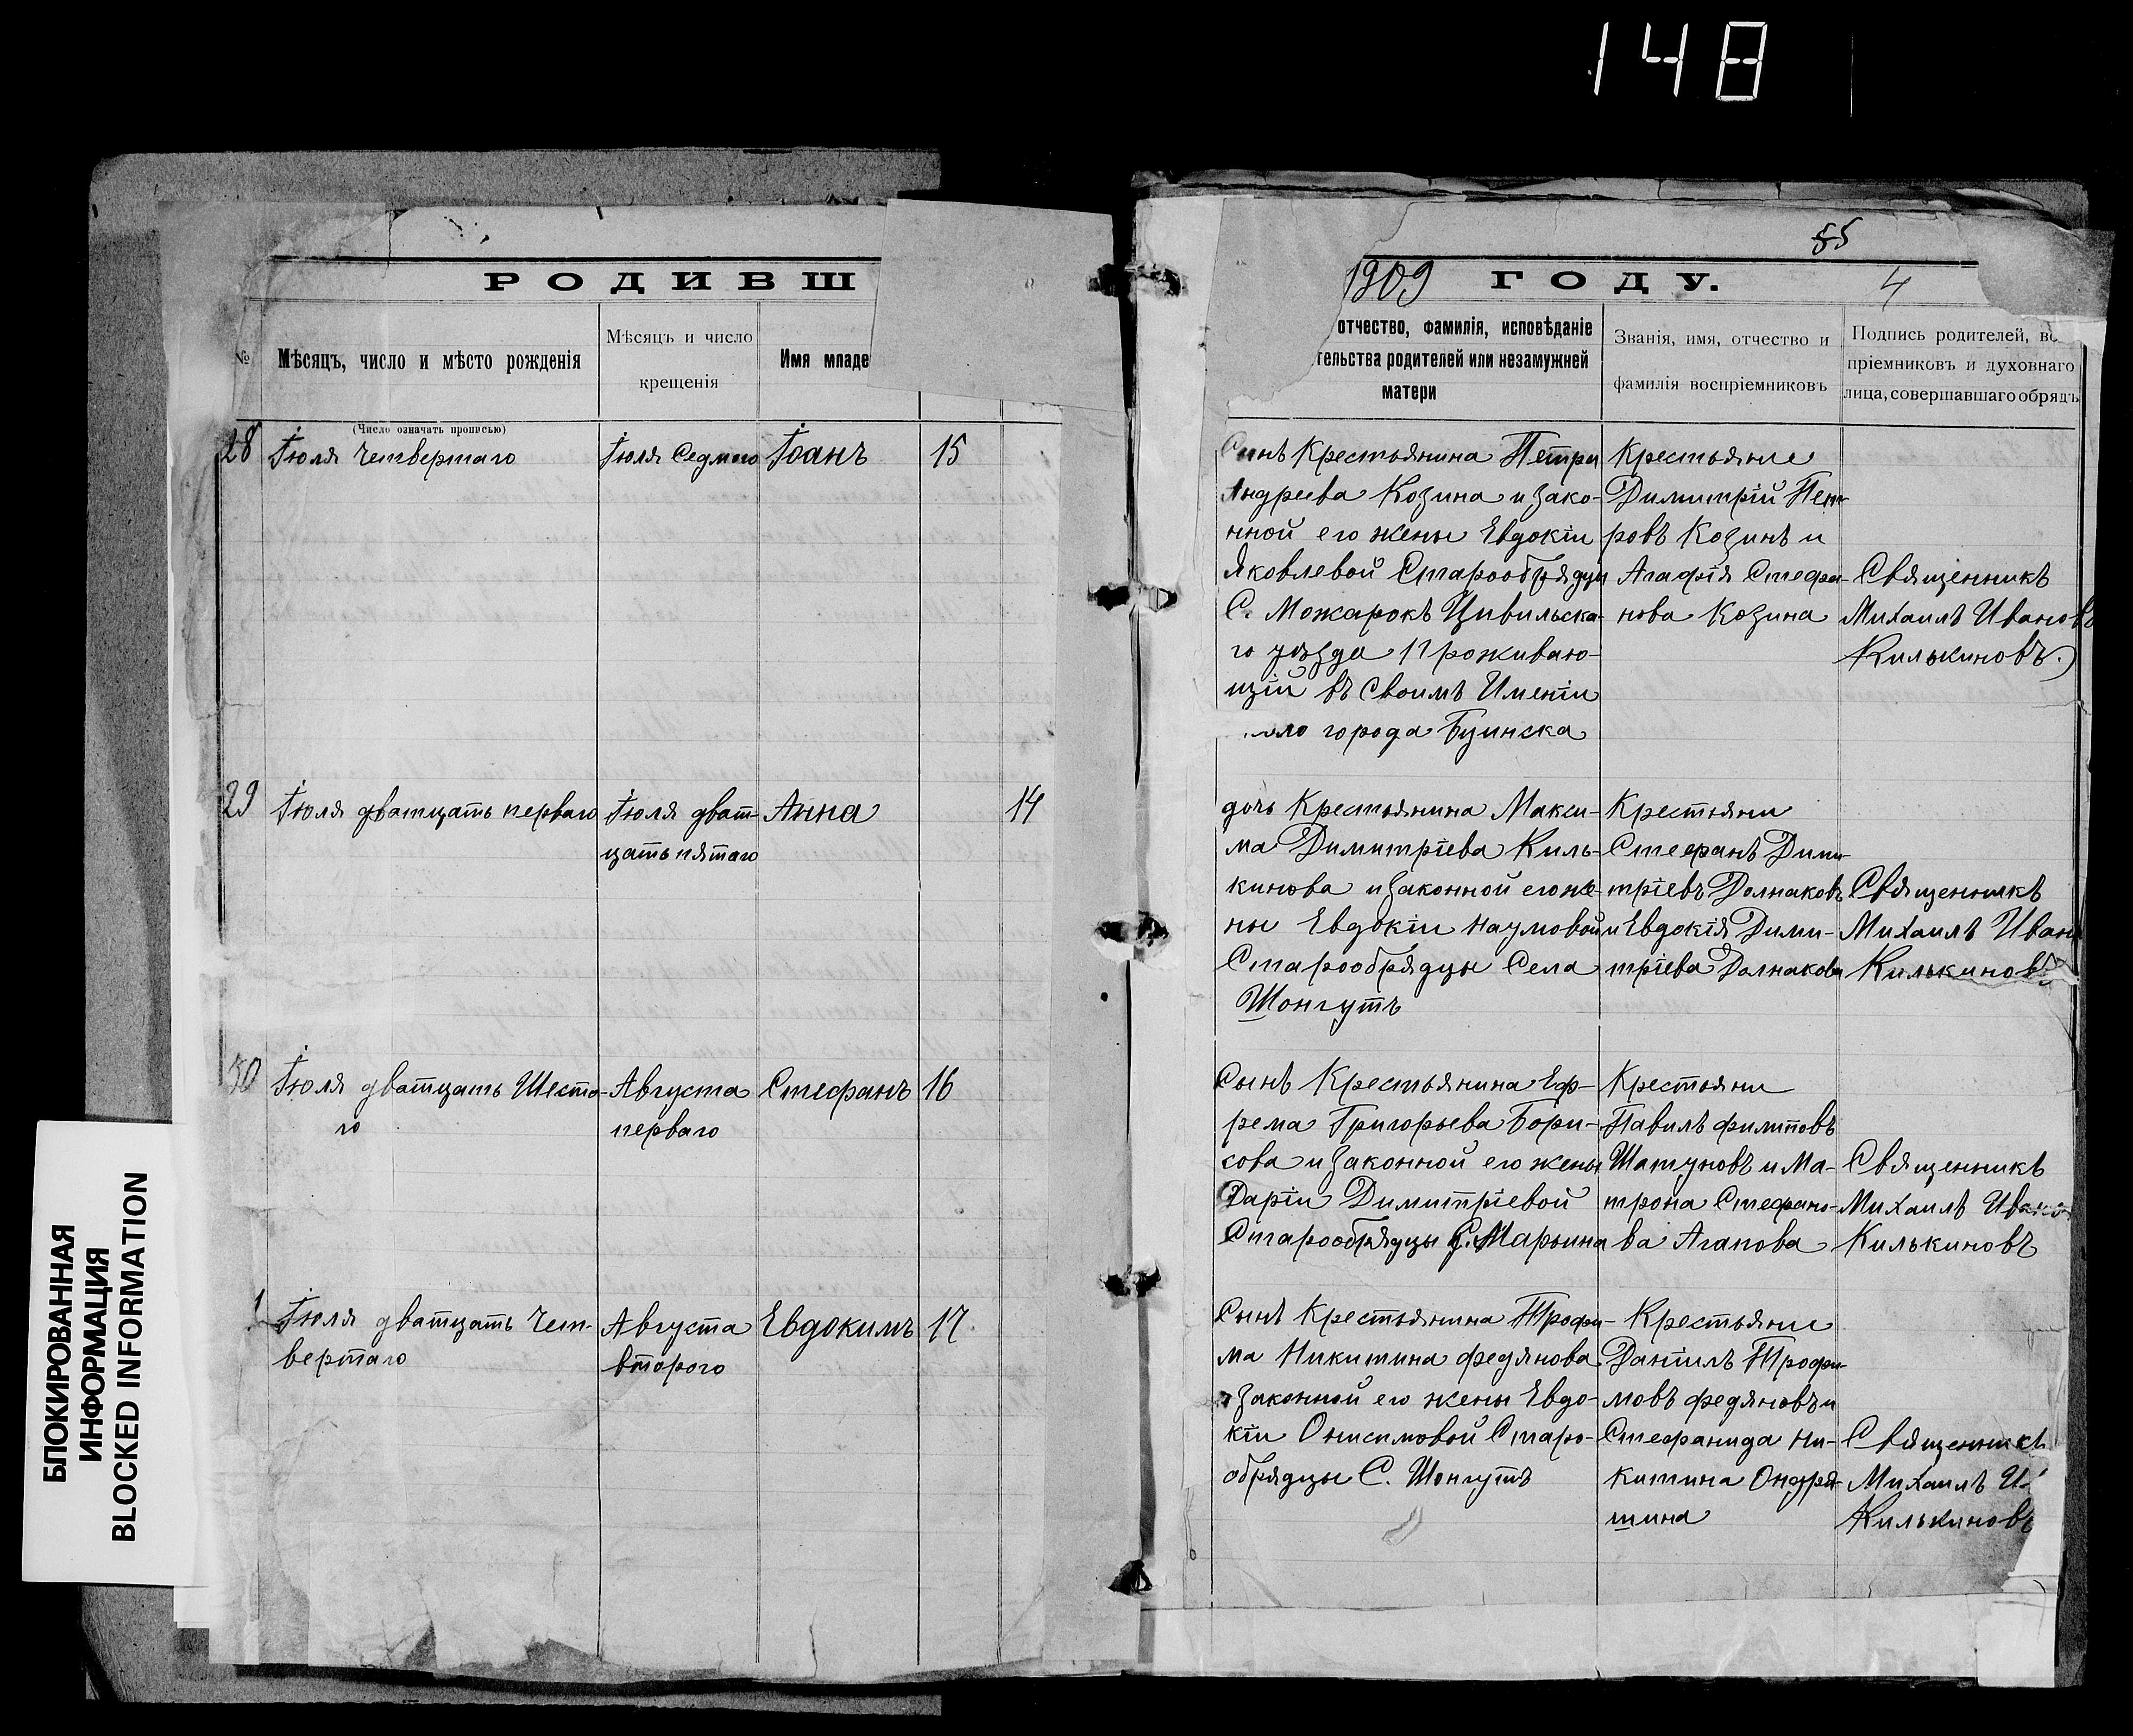 148
55
РОДИВШ
1909 ГОДУ.
4
№
Мѣсяцъ, число и мѣсто рожденія
Мѣсяцъ и число
крещенія
Имя младе
отчество, фамилія, исповѣданіе
тельства родителей или незамужней
матери
Званія, имя, отчество и
фамилія воспріемниковъ
Подпись родителей, во
пріемниковъ и духовнаго
лица, совершавшаго обрядъ
(Число означать прописью)
28
Іюля Четвертаго
Іюля Седмого
Іоанъ
15
Сынъ Крестьянина Петра
Андреева Козина и зако-
нной его жены Евдокіи
Яковлевой Старообрядцы
С. Можарокъ Цивильска-
го уѣзда Проживаю-
щій въ Своимъ Именіи
города Буинска
Крестьяне
Димитрій Пет-
ровъ Козинъ и
Агафія Стефа-
нова Козина
Священникъ
Михаилъ Ивановъ
Килькиновъ
29
Іюля дватцать перваго
Іюля дват-
цать пятаго
Анна
14
дочь Крестьянина Макси-
ма Димитріева Киль-
кинова и Законной его же-
ны Евдокіи Наумовой
Старообрядцы Села
Шонгутъ
Крестьяни
Стефанъ Дими-
тріевъ Долнаковъ
и Евдокія Дими-
тріева Долнакова
Священникъ
Михаилъ Иван
Килькиновъ
30
Іюля дватцать Шесто-
го
Августа
перваго
Стефанъ
16
Сынъ Крестьянина Еф-
рема Григорьева Бори-
сова и Законной его жены
Даріи Димитріевой
Старообрядцы С. Марьина
Крестьяни
Павилъ филиповъ
Шатуновъ и Ма-
трона Стефано-
ва Агапова
Священникъ
Михаилъ Ивано
Килькиновъ
1
Іюля дватцать Чет-
вертаго
Августа
второго
Евдокимъ
17
Сынъ Крестьянина Трофи-
ма Никитина федянова
Законной его жены Евдо-
кіи Онисимовой Старо-
обрядцы С. Шонгутъ
Крестьяни
Даніилъ Трофи-
мовъ федяновъ и
Стефанида Ни-
китина Ондря-
шина
Священникъ
Михаилъ И
Килькиновъ
БЛОКИРОВАННАЯ
ИНФОРМАЦИЯ
BLOCKED INFORMATION